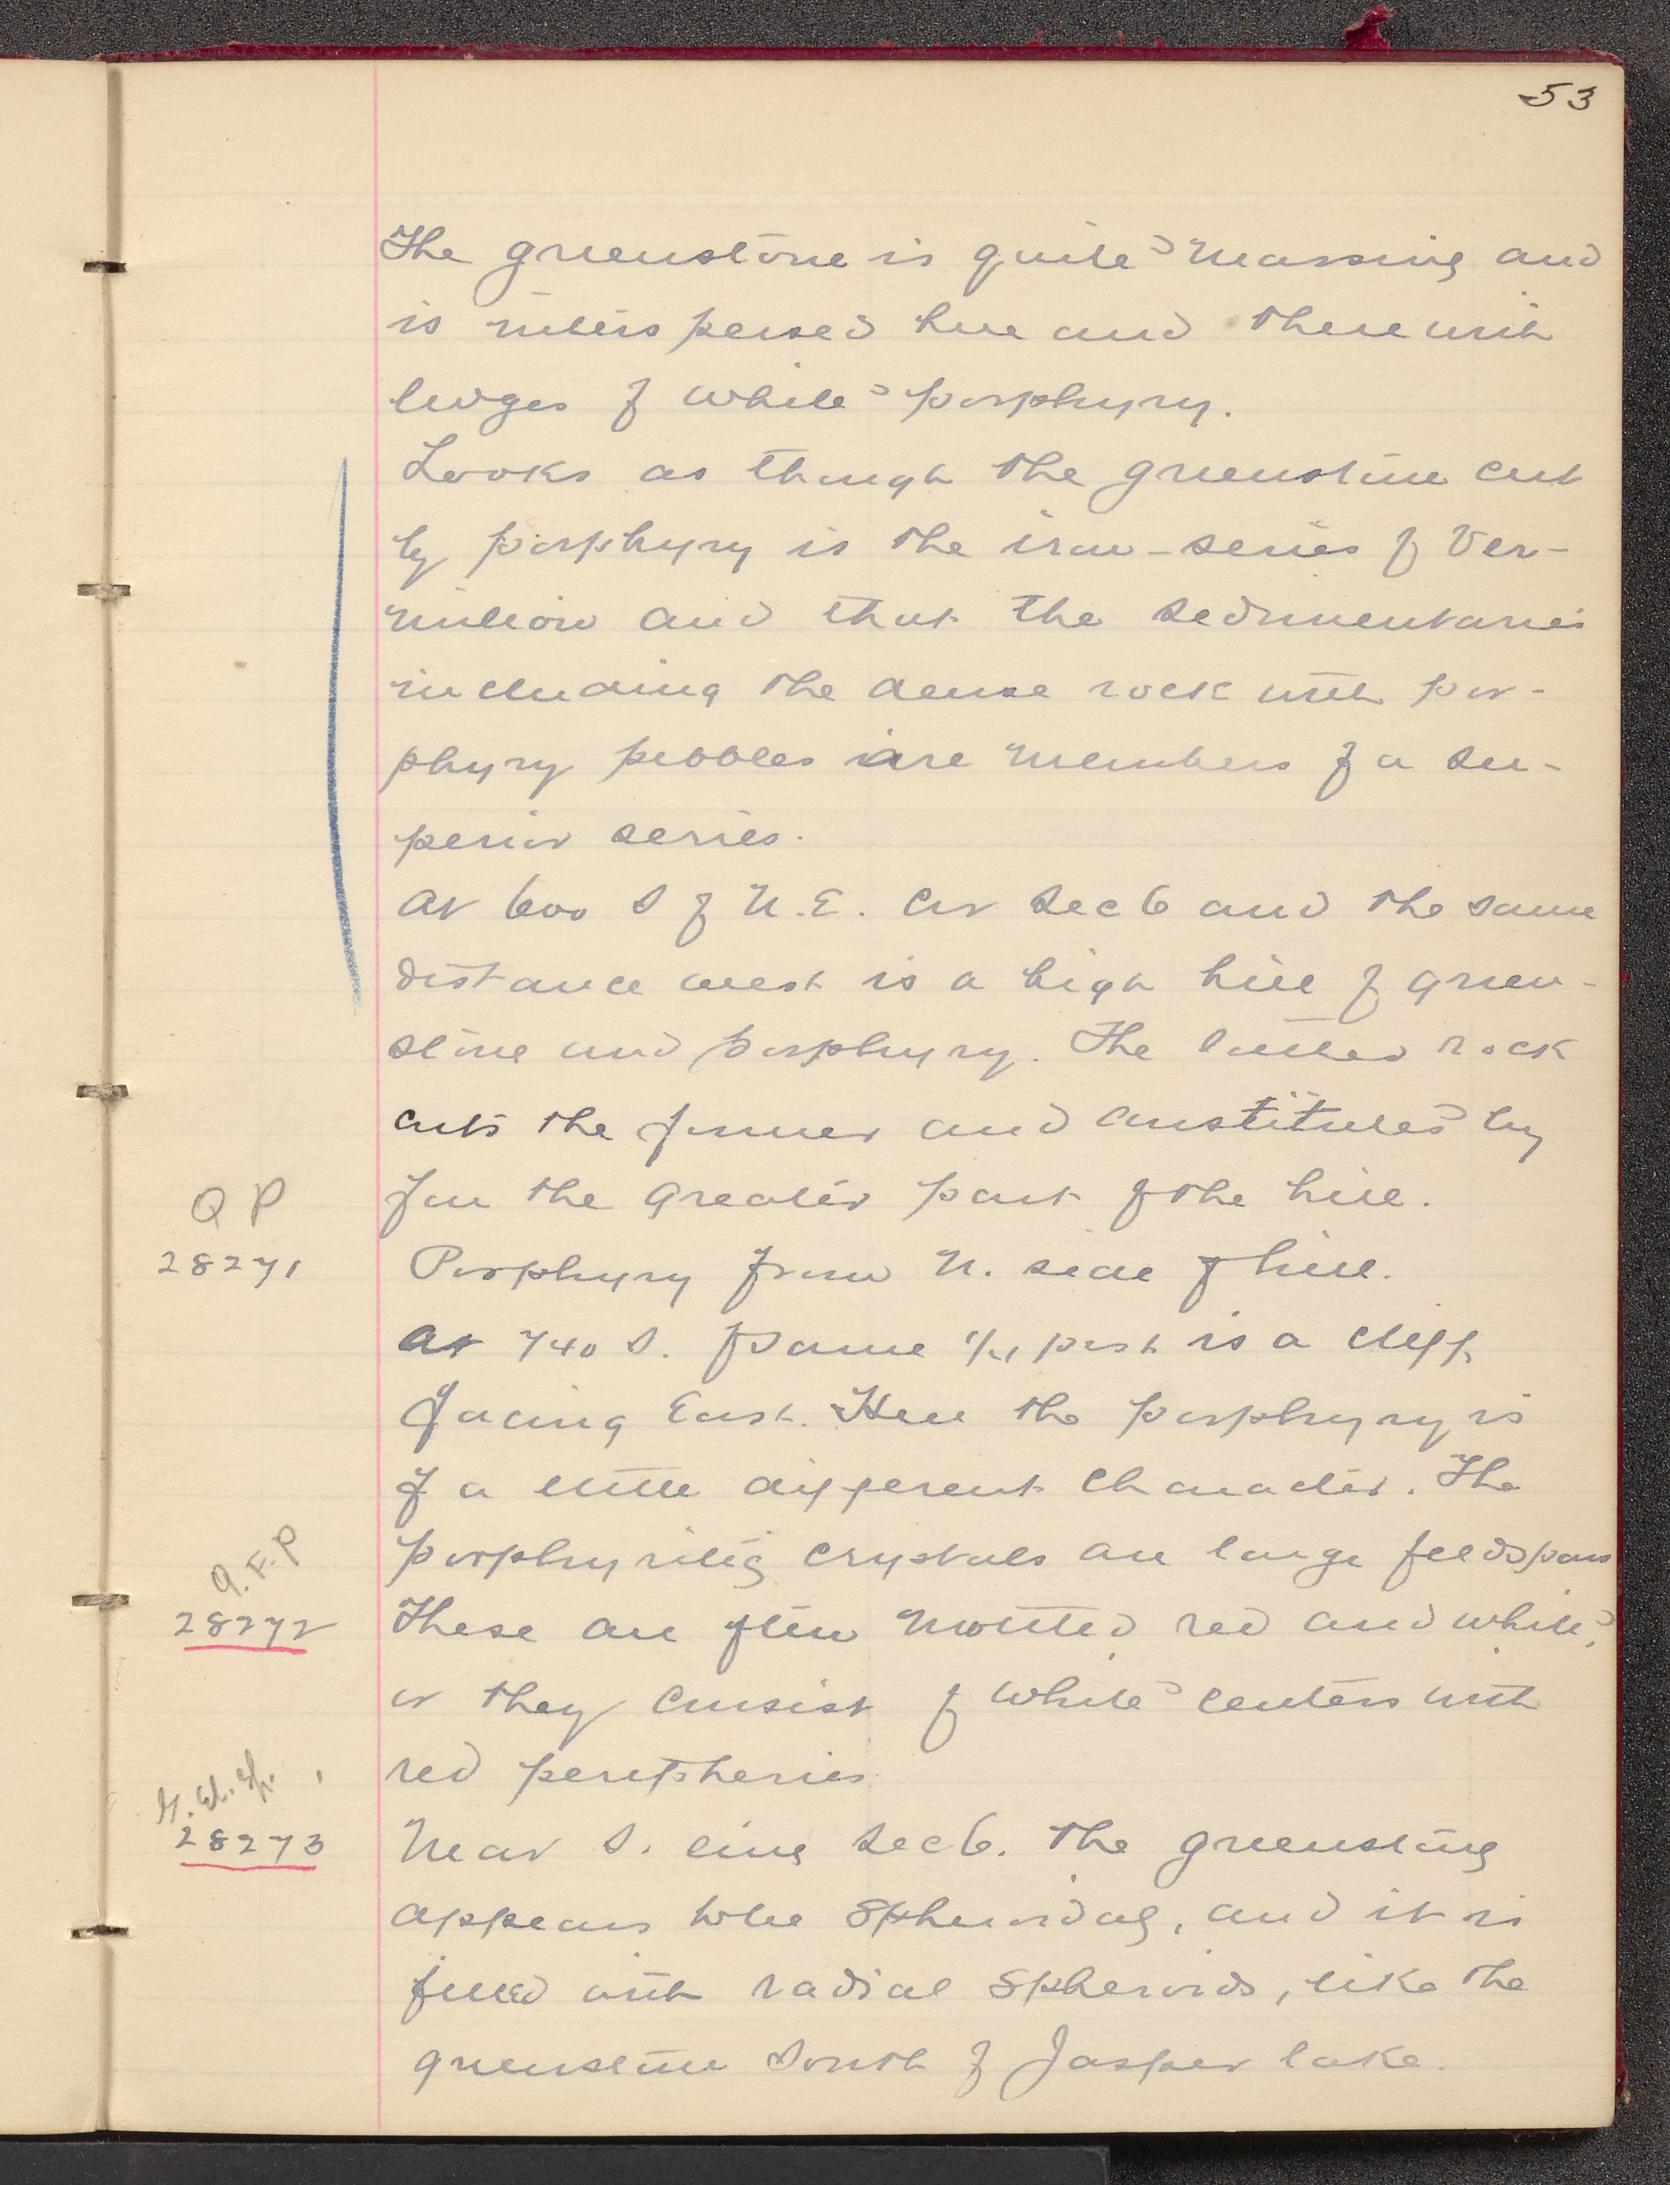 53
The greenstone is quite massive and
is interspersed here and there with
ledges of white porphyry.
Looks as though the greenstone cut
by porphyry is the iron-series of Ver-
million and that the sedimentaries
including the dense rock with por-
phyry pebbles are members of a su-
perior series.
At 600 S of N.E. Cor Sec 6 and the same
distance west is a high hill of green-
stone and porphyry. The latter rock
cuts the former and constitutes by
far the greater part of the hill.
Q P
28271 Porphyry from N. side of hill.
At 740 S. of same 1/4 post is a cliff
facing East. Here the porphyry is
of a little different character. The
porphyritic crystals are large feldspars
Q.F.P
28272 These are often mottled red and white,
or they consist of white centers with
red peripheries.
28273 Near S. line Sec 6. the greenstone
appears to be spheroidal, and it is
filled with radial spheroids, like the
greenstone South of Jasper lake.